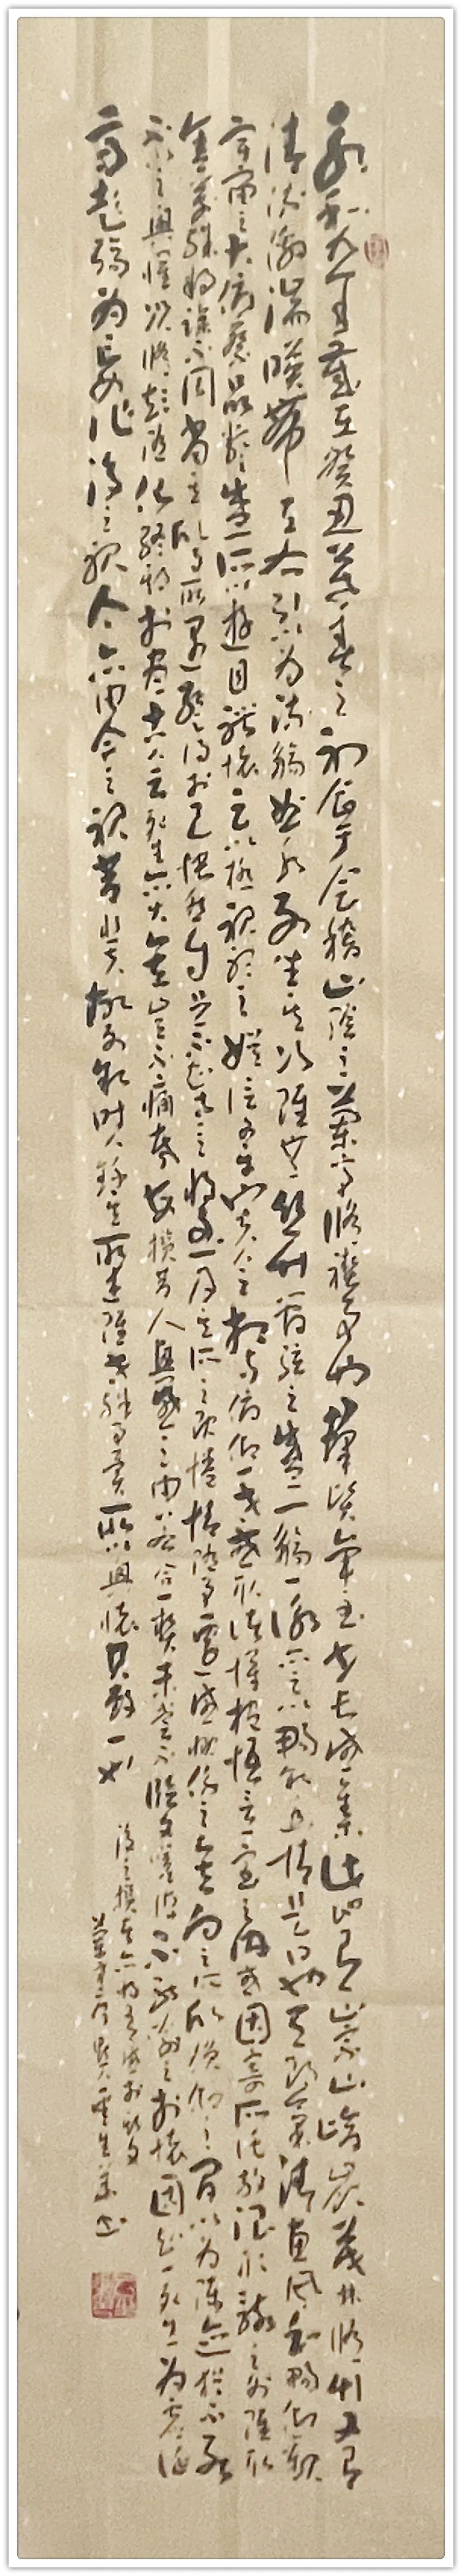 永和九年歲在癸丑暮春之初會于會稽山陰之蘭亭脩禊事也群賢畢至少長咸集此地有崇山峻領茂林脩竹又有
清流激湍暎帶左右引以為流觴曲水列坐其次雖無絲竹管弦之盛一觴一詠亦足以暢敘幽情是日也天朗氣清惠風和暢仰觀
宇宙之大俯察品類之盛所以遊目騁懷足以極視聽之娛信可樂也夫人之相與俯仰一世或取諸懷抱悟言一室之內或因寄所託放浪形骸之外雖取
舍萬殊靜躁不同當其欣於所遇暫得於己快然自足不知老之將至及其所之既惓情隨事遷感慨係之矣向之所欣俛仰之間以為陳迹猶不能
不以之興懷況脩短隨化終期於盡古人云死生亦大矣豈不痛哉每攬昔人興感之由若合一契未嘗不臨文嗟悼不能喻之於懷固知一死生為虛誕
齊彭殤為妄作後之視今亦由今之視昔悲夫故列敘時人錄其所述雖世殊事異所以興懷其致一也
後之攬者亦將有感於斯文
蘭亭序 書